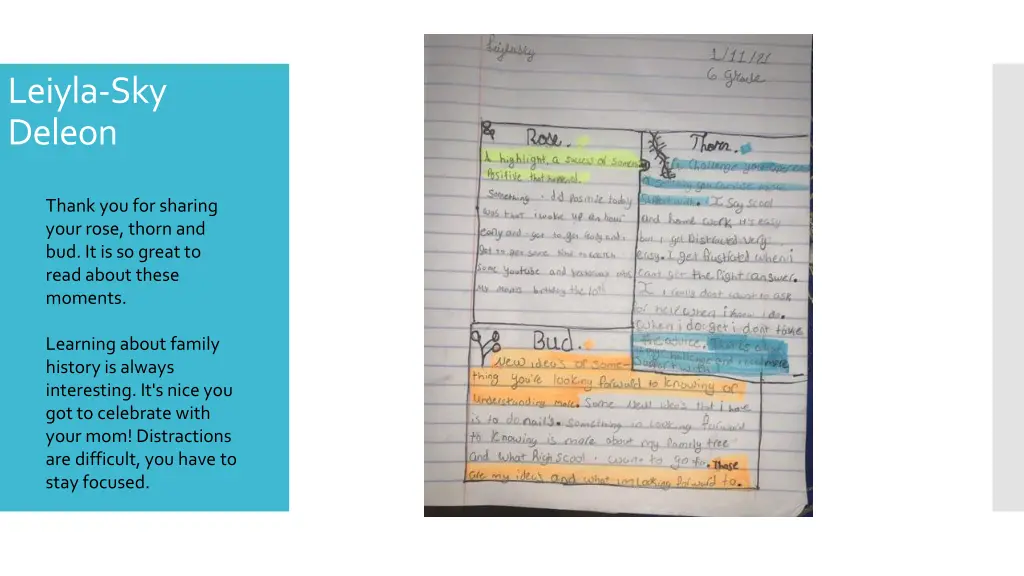 Leiyla-Sky
Deleon
Thank you for sharing
your rose, thorn and
bud. It is so great to
read about these
moments.
Learning about family
history is always
interesting. It's nice you
got to celebrate with
your mom! Distractions
are difficult, you have to
stay focused.
LeiylaSky
1/11/21
6 Grade
Rose.
A highlight, a
Positive that
Something i did positive today
was that i woke up an hour
early and got to get ready and
got to get some time to watch
some youtube and
My moms birthday the 10th
Thorn.
A Challenge you
I say scool
and home work it's easy
but i get Distracted very
easy. I get frustrated when i
cant get the right answer.
I really dont want to ask
for help when i know i do.
When i do get i dont take
the advice.
Bud.
New idea's or some-
thing you're looking forward to knowing or
understanding more. Some new idea's that i have
is to do nail's. something im looking forward
to knowing is more about my family tree
and what High scool i want to go to. Those
are my idea's and what im looking forward to.